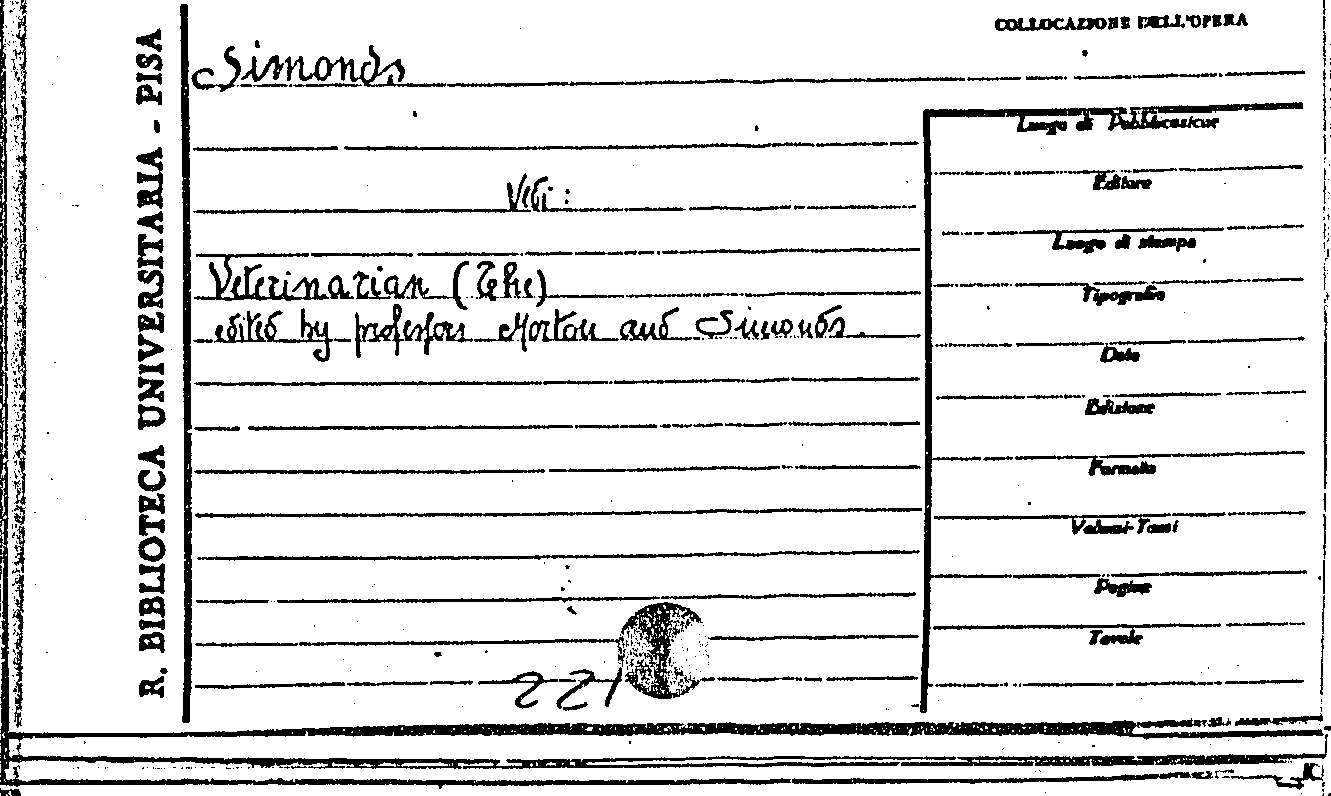 COLLOCAZIONE DELL'OPERA
R. BIBLIOTECA UNIVERSITARIA - PISA
Simonds
Vedi:
Veterinarian (The)
edited by professors Morton and Simonds.
221
Luogo di Pubblicazione
Editore
Luogo di stampa
Tipografia
Data
Edizione
Formato
Volumi-Tomi
Pagine
Tavole